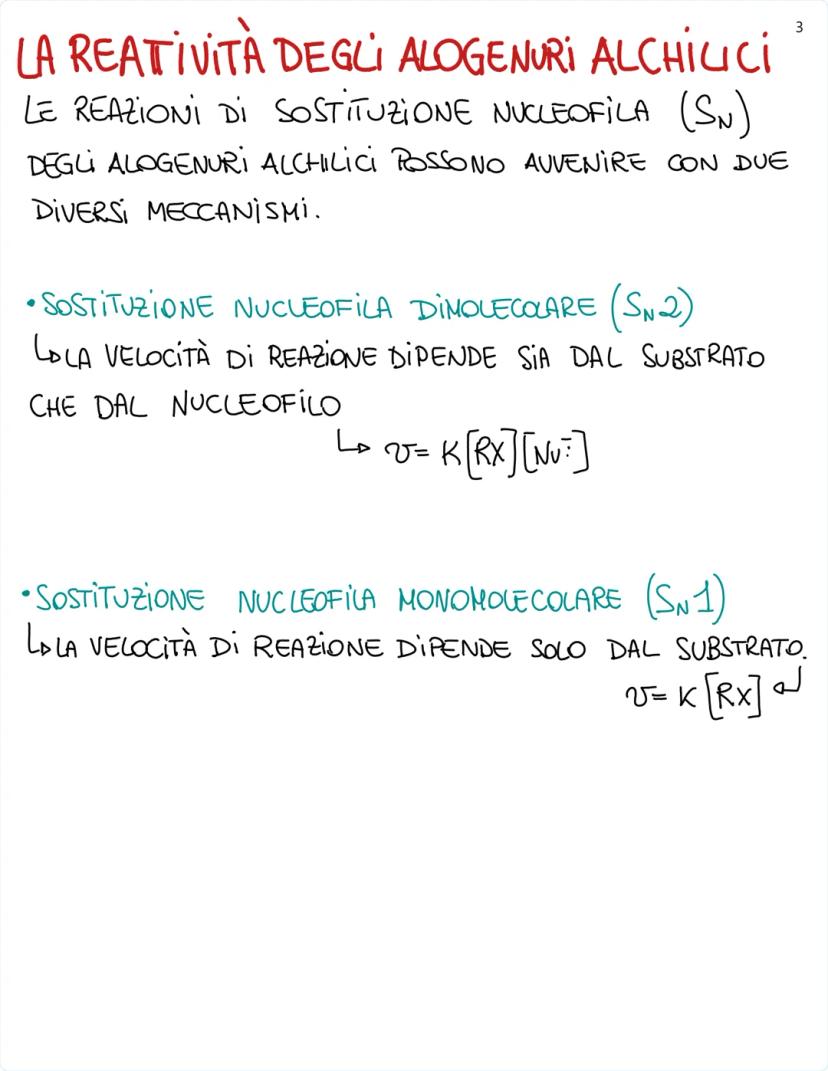 3
LA REATTIVITÀ DEGLI ALOGENURI ALCHILICI
LE REAZIONI DI SOSTITUZIONE NUCLEOFILA (SN)
DEGLI ALOGENURI ALCHILICI POSSONO AVVENIRE CON DUE
DIVERSI MECCANISMI.
• SOSTITUZIONE NUCLEOFILA DIMOLECOLARE (SN2)
↳ LA VELOCITÀ DI REAZIONE DIPENDE SIA DAL SUBSTRATO
CHE DAL NUCLEOFILO
↳ v = K[RX][Nu:⁻]
• SOSTITUZIONE NUCLEOFILA MONOMOLECOLARE (SN1)
↳ LA VELOCITÀ DI REAZIONE DIPENDE SOLO DAL SUBSTRATO.
v = K[RX] ↵